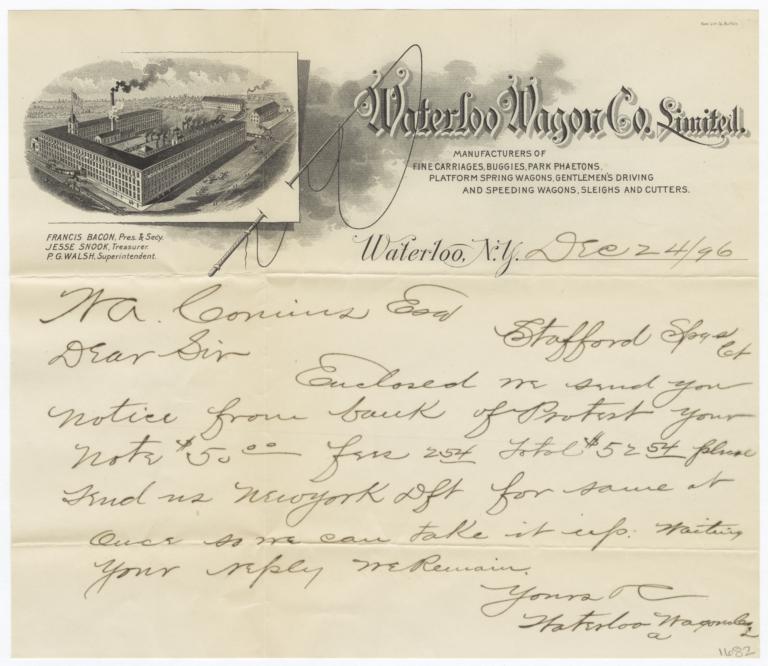 Waterloo Wagon Co. Limited.
MANUFACTURERS OF
FINE CARRIAGES, BUGGIES, PARK PHAETONS,
PLATFORM SPRING WAGONS, GENTLEMEN'S DRIVING
AND SPEEDING WAGONS, SLEIGHS AND CUTTERS.
FRANCIS BACON, Pres. & Secy.
JESSE SNOOK, Treasurer.
P. G. WALSH, Superintendent.
Waterloo, N.Y. Dec 24/96
W A. Comins Esq
Stafford Spgs Ct
Dear Sir
Enclosed we send you
notice from bank of Protest your
Note $50 00 fees 254 total $52 54 please
send us Newyork Dft for same at
Once so we can take it up. Waiting
Your reply We Remain.
Yours
Waterloo Wagon Co
1682